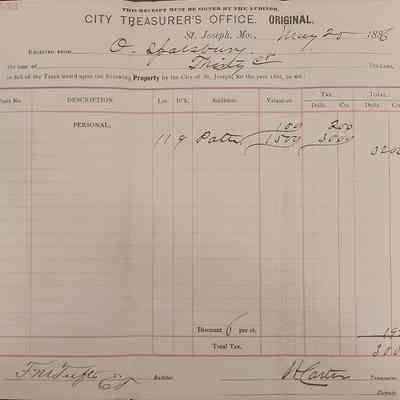 THIS RECEIPT MUST BE SIGNED BY THE AUDITOR.
CITY TREASURER'S OFFICE. ORIGINAL.
St. Joseph, Mo., May 20 1886
RECEIVED FROM O. Spalsbury
the sum of Thirty DOLLARS,
in full of the Taxes levied upon the following Property by the City of St. Joseph, for the year 188 , to wit:
No. DESCRIPTION. Lot. Bl'k. Addition. Valuation. TAX. TOTAL.
Dolls. Cts. Dolls. Cts.
PERSONAL, 100 200
11 9 Patee 1500 3000
320
Discount 6 per ct.
Total Tax.
Auditor. Carter Treasurer.
Deputy.